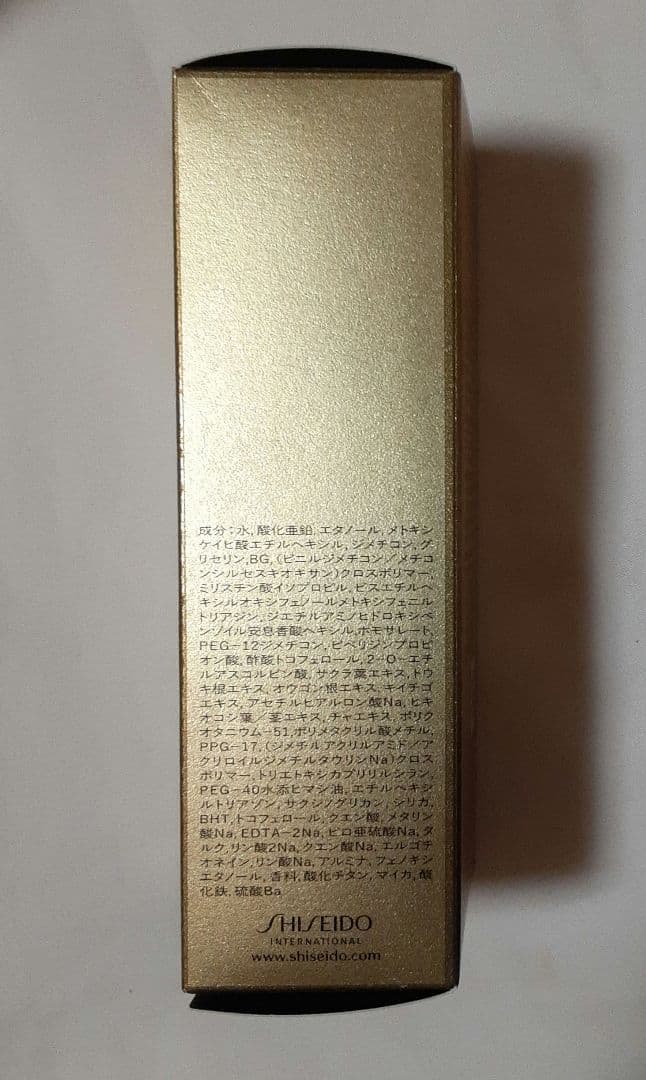 成分:水,酸化亜鉛,エタノール,メトキシ
ケイヒ酸エチルヘキシル,ジメチコン,グ
リセリン,BG,(ビニルジメチコン/メチコ
ンシルセスキオキサン)クロスポリマー,
ミリスチン酸イソプロピル,ビスエチルヘ
キシルオキシフェノールメトキシフェニル
トリアジン,ジエチルアミノヒドロキシベ
ンゾイル安息香酸ヘキシル,ホモサレート,
PEG-12ジメチコン,ピペリジンプロピ
オン酸,酢酸トコフェロール,2-O-エチ
ルアスコルビン酸,サクラ葉エキス,トウ
キ根エキス,オウゴン根エキス,キイチゴ
エキス,アセチルヒアルロン酸Na,ヒキ
オコシ葉/茎エキス,チャエキス,ポリク
オタニウム-51,ポリメタクリル酸メチル,
PPG-17,(ジメチルアクリルアミド/ア
クリロイルジメチルタウリンNa)クロス
ポリマー,トリエトキシカプリリルシラン,
PEG-40水添ヒマシ油,エチルヘキシ
ルトリアゾン,サクシノグリカン,シリカ,
BHT,トコフェロール,クエン酸,メタリン
酸Na,EDTA-2Na,ピロ亜硫酸Na,タ
ルク,リン酸2Na,クエン酸Na,エルゴチ
オネイン,リン酸Na,アルミナ,フェノキシ
エタノール,香料,酸化チタン,マイカ,酸
化鉄,硫酸Ba
SHISEIDO
INTERNATIONAL
www.shiseido.com